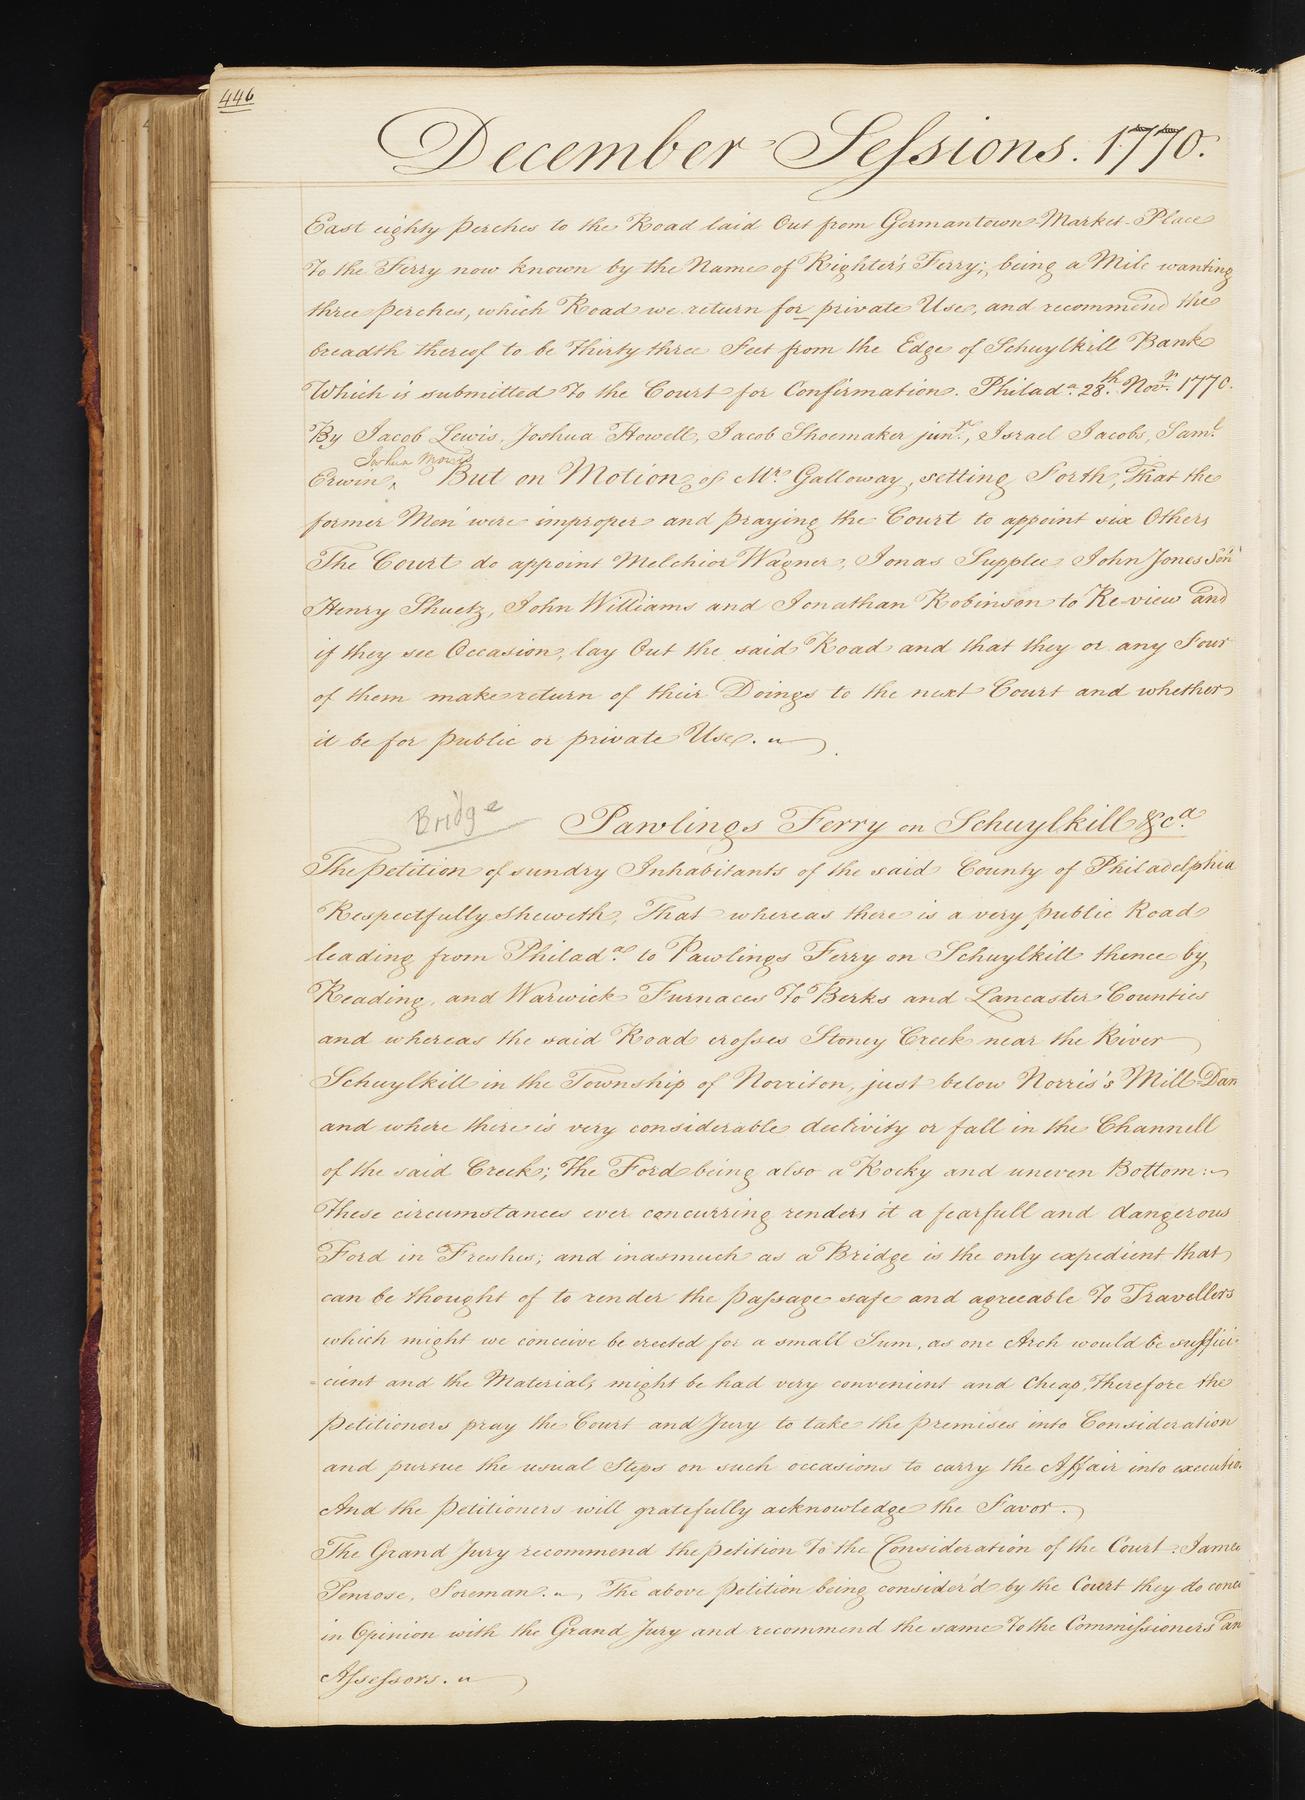 446
December Sessions. 1770.
East eighty perches to the Road laid Out from Germantown Market-Place
To the Ferry now known by the Name of Righter's Ferry; being a Mile wanting
three perches, which Road we return for private Use, and recommend the
breadth thereof to be thirty three Feet from the Edge of Schuylkill Bank
Which is submitted To the Court for Confirmation. Philada. 28th. Novr. 1770.
By Jacob Lewis, Joshua Howell, Jacob Shoemaker junr., Israel Jacobs, Saml.
Joshua Morris
Erwin, ‸ But on Motion of Mr. Galloway, setting Forth, That the
former Men were improper and praying the Court to appoint six Others
The Court do appoint Melchior Wagner, Jonas Supplee John Jones Sen
Henry Shuetz, John Williams and Jonathan Robinson to Re-view and
if they see Occasion, lay Out the said Road and that they or any Four
of them make return of their Doings to the next Court and whether
it be for public or private Use.
Bridge
Pawlings Ferry on Schuylkill &ca.
The petition of sundry Inhabitants of the said County of Philadelphia
Respectfully sheweth, That whereas there is a very public Road
leading from Philada. to Pawlings Ferry on Schuylkill thence by
Reading, and Warwick Furnaces To Berks and Lancaster Counties
and whereas the said Road crosses Stoney Creek near the River
Schuylkill in the Township of Norriton, just below Norris's Mill-Dam
and where there is very considerable declivity or fall in the Channell
of the said Creek; The Ford being also a Rocky and uneven Bottom:
These circumstances ever concurring renders it a fearfull and dangerous
Ford in Freshes; and inasmuch as a Bridge is the only expedient that
can be thought of to render the passage safe and agreeable To Travellers
which might we conceive be erected for a small Sum, as one Arch would be suffici-
-cient and the Materials might be had very convenient and Cheap, Therefore the
petitioners pray the Court and Jury to take the premises into Consideration
and pursue the usual Steps on such occasions to carry the Affair into executio
And the petitioners will gratefully acknowledge the Favor.
The Grand Jury recommend the petition To the Consideration of the Court. James
Penrose, Foreman. The above petition being consider'd by the Court they do conc
in Opinion with the Grand Jury and recommend the same To the Commissioners an
Assessors.